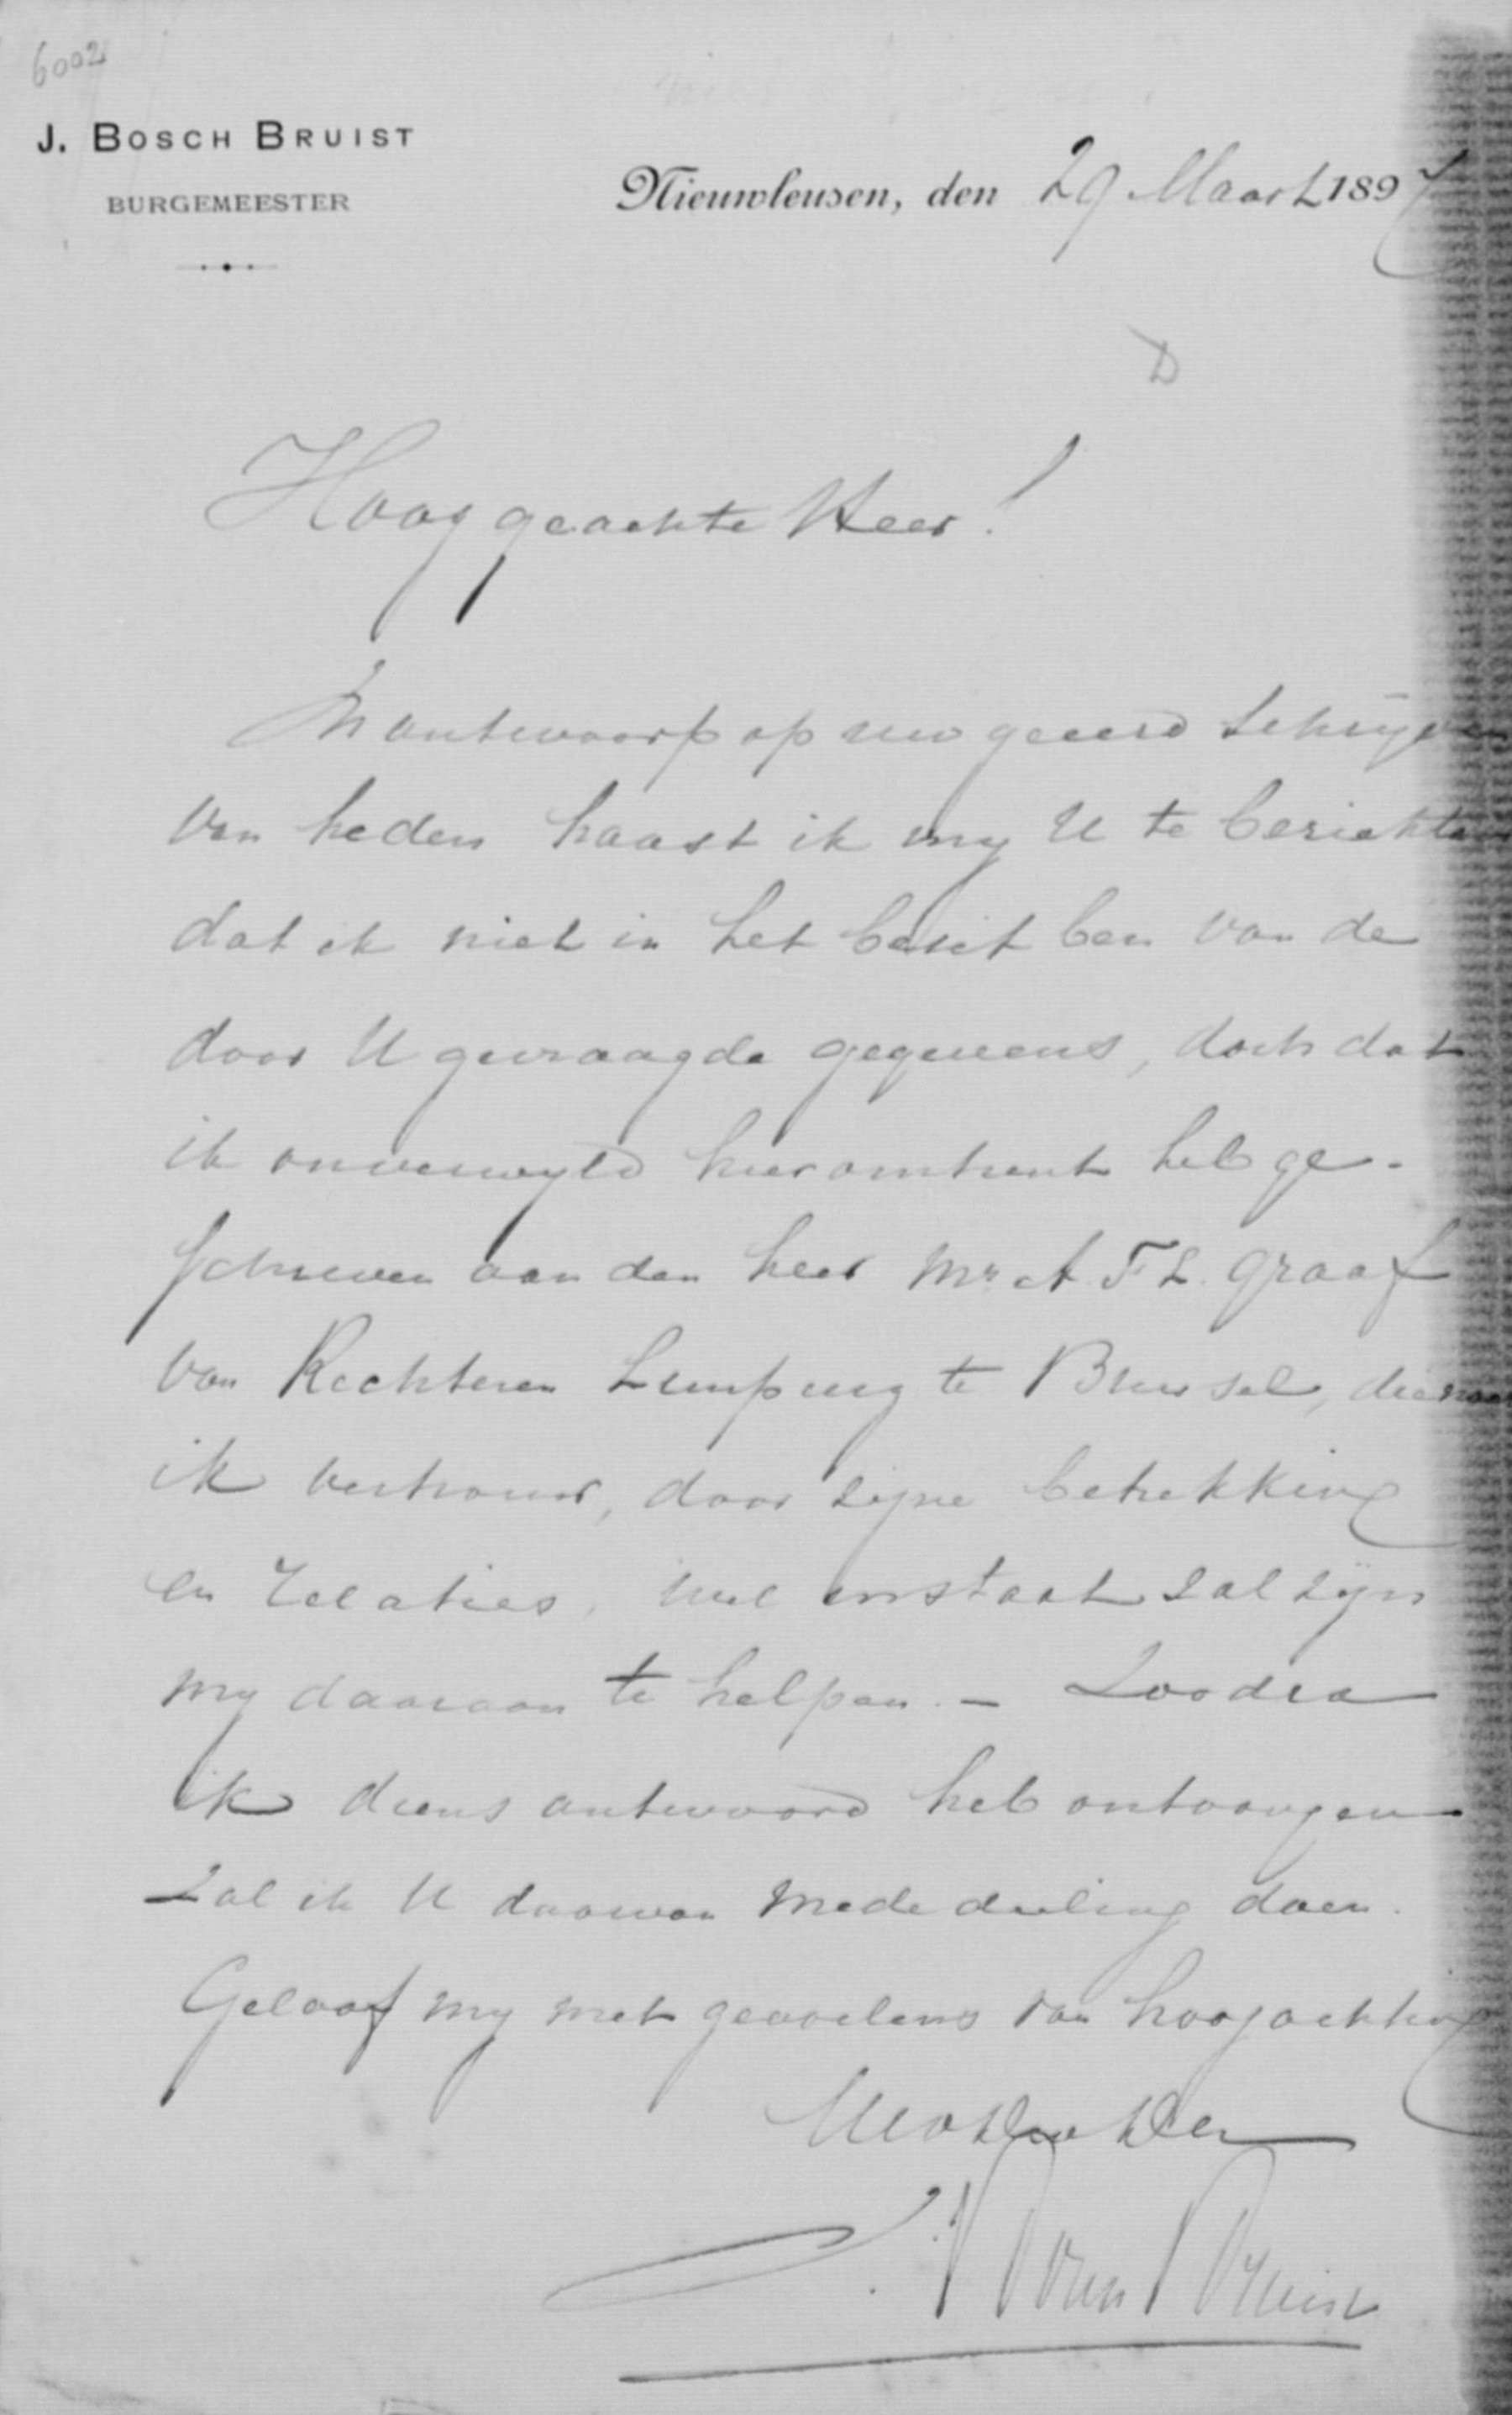 6002
J. BOSCH BRUIST
BURGEMEESTER
Nieuwleusen, den 29 Maart 1897
D
Hooggeachte Heer!
In antwoord op uw geeerd schrijven
van heden haast ik my U te berichten
dat ik niet in het bezit ben van de
door U gevraagde gegevens, doch dat
ik onverwyld hieromtrent heb ge-
schreven aan den heer Mr. A F L. Graaf
van Rechteren Limpurg te Brussel, die naar
ik vertrouw, door zijne betrekking
en relaties, wel instaat zal zijn
my daaraan te helpen. – Zoodra
ik diens antwoord heb ontvangen
zal ik U daarvan mededeeling doen.
Geloof my met gevoelens van hoogachting
J. Bosch Bruist